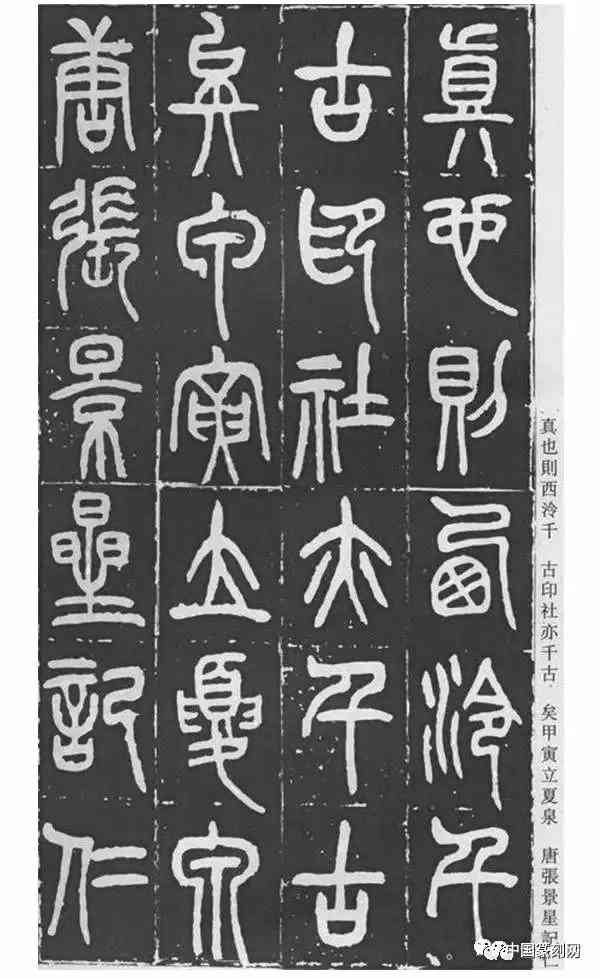 真也則西泠千
古印社亦千古
矣甲寅立夏泉
唐張景星記仁
真也則西泠千 古印社亦千古 矣甲寅立夏泉 唐張景星記仁
中国篆刻网